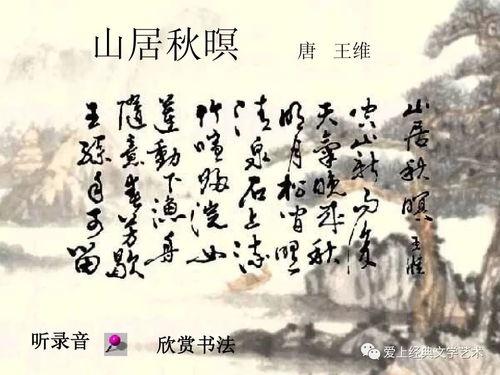 山居秋暝
唐 王维
山居秋暝 王維
空山新雨後
天氣晚來秋
明月松间照
清泉石上流
竹喧歸浣女
蓮動下漁舟
隨意春芳歇
王孫自可留
听录音
欣赏书法
爱上经典文学艺术